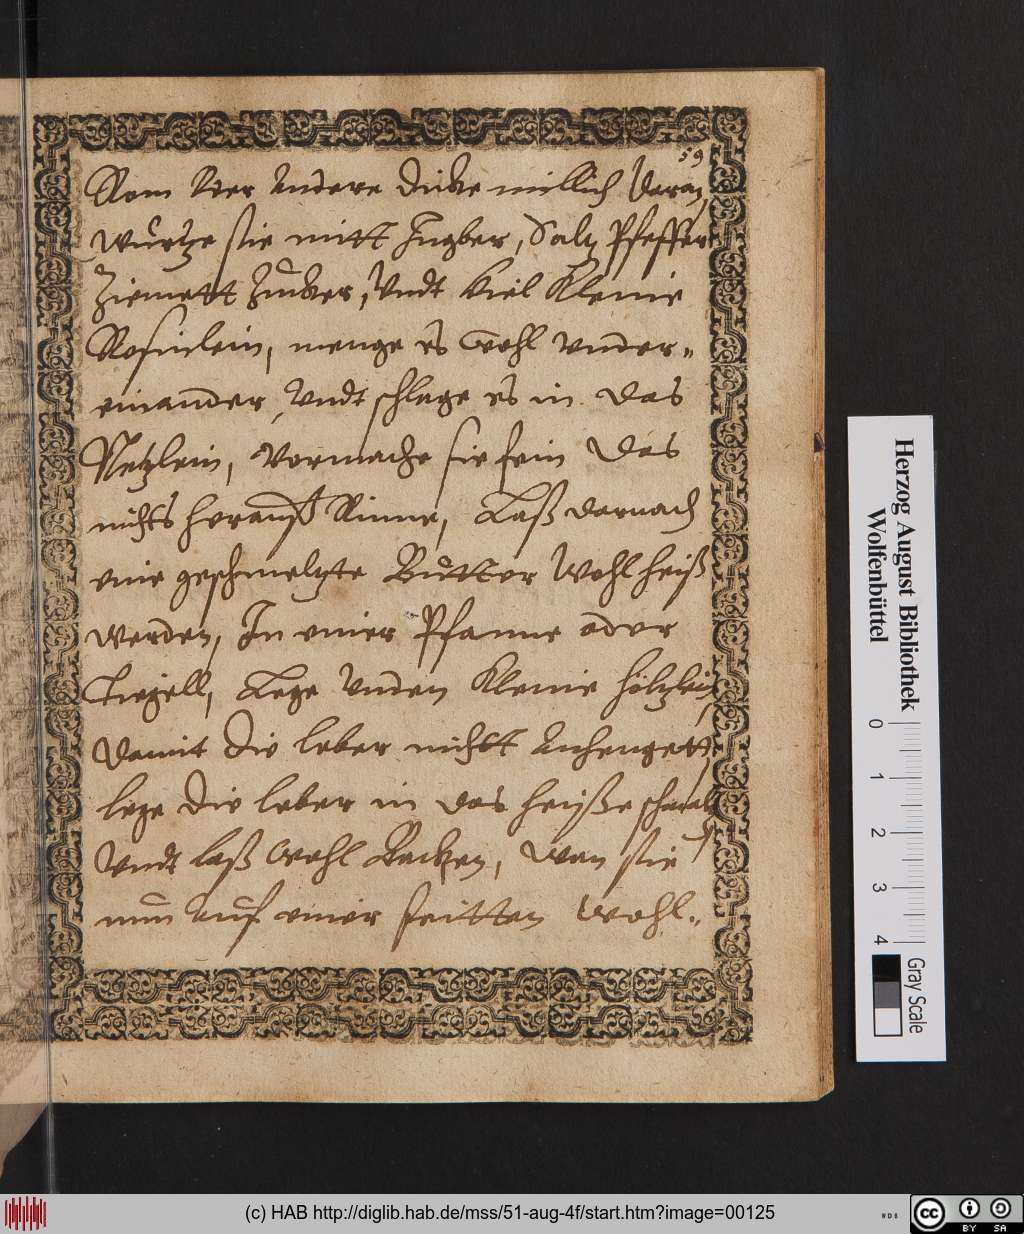 59
Rom oder andere dicke millich daran,
würtze sie mitt Ingber, Saltz Pfeffer
Ziemett Zucker, Undt viel Kleine
Rosinlein, menge es wohl under-
einander, Undt schlage es in das
Netzlein, Vermache sie fein das
nichts herauß Rinne, Laß darnach
eine geschmeltzte Butter wohl heiß
werden, In einer Pfanne oder
Tiegell, Lege Unden Kleine höltzlein,
damit die leber nicht anhengett,
lege die leber in das heiße schmaltz
Undt laß wohl Backen, wan sie
nun auf einer seitten wohl-
Herzog August Bibliothek
Wolfenbüttel
0 1 2 3 4
Gray Scale
(c) HAB http://diglib.hab.de/mss/51-aug-4f/start.htm?image=00125
WDB
cc BY SA